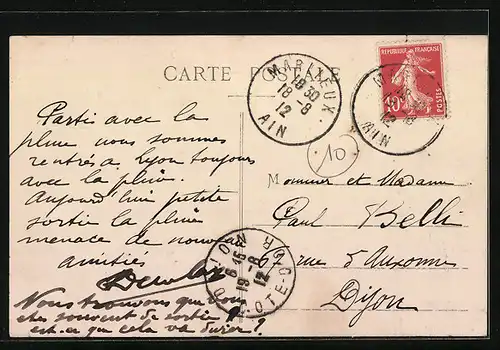 CARTE POSTALE
MARLIEUX
18 30
18-8
12
AIN
REPUBLIQUE FRANÇAISE
10
POSTES
10
Partis avec la
pluie nous sommes
rentrés à Lyon toujours
avec la pluie.
Aujourd'hui petite
sortie la pluie
menace de nouveau
amitié
Nous trouvons que
souvent de sortie
est-ce que cela va durer ?
Monsieur et Madame
Paul Belli
rue d'Auxonne
Dijon
DIJON GARE
19-8
12
COTE-D'OR